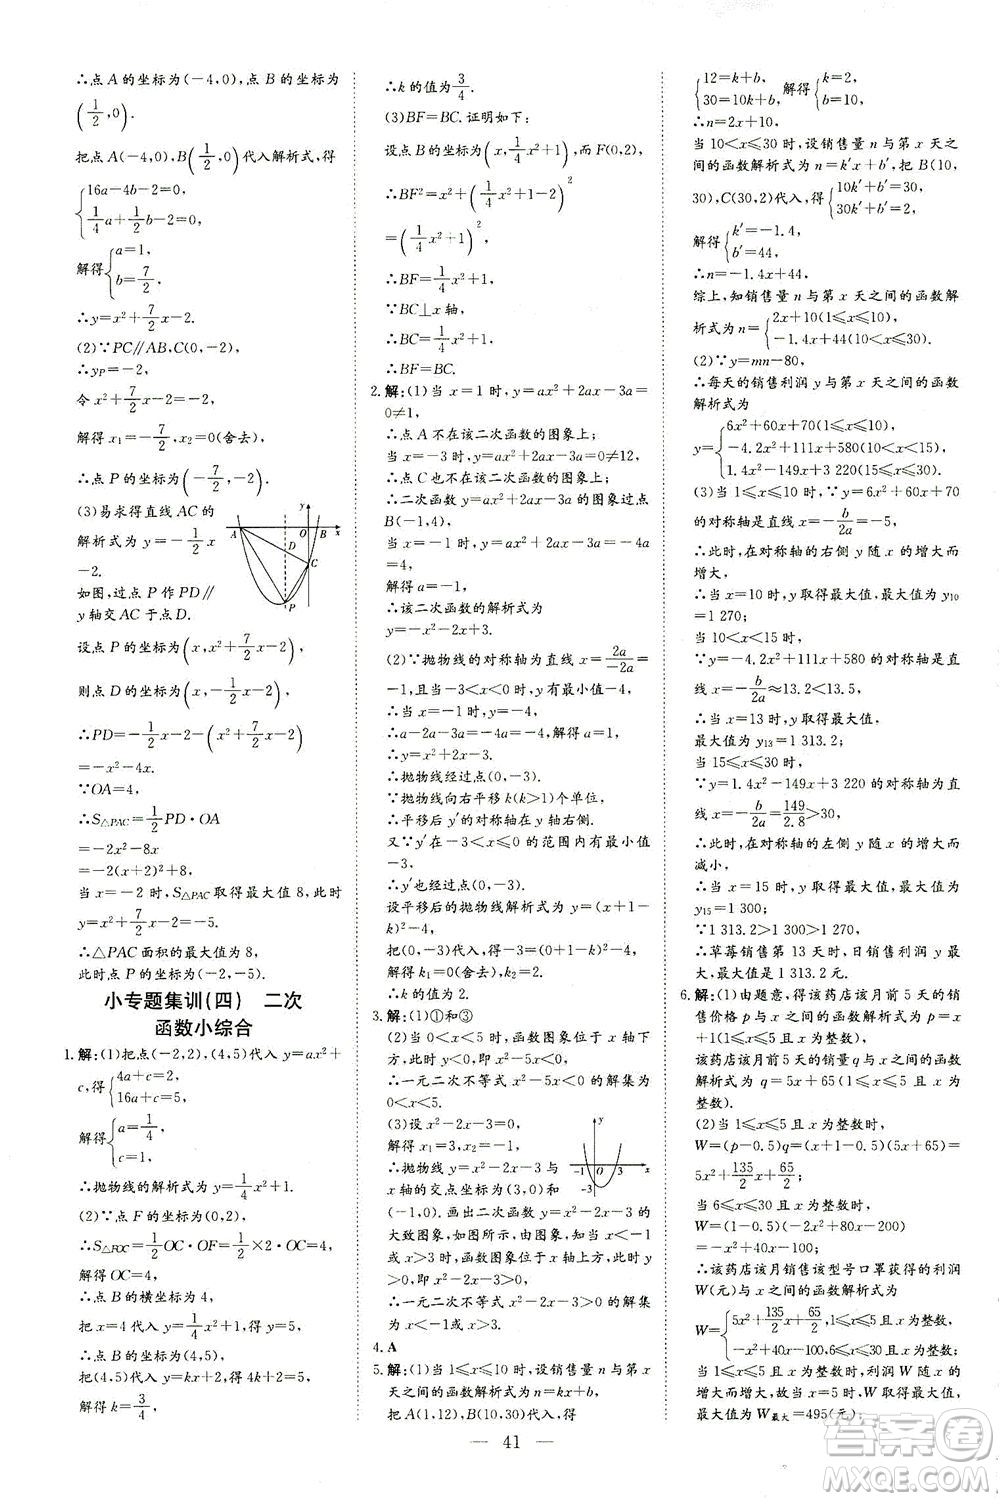 ∴点 A 的坐标为(-4,0),点 B 的坐标为
(1/2,0)
把点 A(-4,0),B(1/2,0)代入解析式,得
{16a-4b-2=0,
1/4a+1/2b-2=0,
解得{a=1,
b=7/2,
∴y=x²+7/2x-2.
(2)∵PC∥AB,C(0,-2),
∴y_P=-2,
令 x²+7/2x-2=-2,
解得 x₁=-7/2,x₂=0(舍去),
∴点 P 的坐标为(-7/2,-2).
(3)易求得直线 AC 的
解析式为 y=-1/2x
-2.
如图,过点 P 作 PD∥
y 轴交 AC 于点 D.
A O B x y D C P
设点 P 的坐标为(x,x²+7/2x-2),
则点 D 的坐标为(x,-1/2x-2),
∴PD=-1/2x-2-(x²+7/2x-2)
=-x²-4x.
∵OA=4,
∴S△PAC=1/2PD·OA
=-2x²-8x
=-2(x+2)²+8,
当 x=-2 时,S△PAC取得最大值 8,此时
y=x²+7/2x-2=-5.
∴△PAC 面积的最大值为 8,
此时点 P 的坐标为(-2,-5).
小专题集训(四) 二次
函数小综合
1.解:(1)把点(-2,2),(4,5)代入 y=ax²+
c,得{4a+c=2,
16a+c=5,
解得{a=1/4,
c=1,
∴抛物线的解析式为 y=1/4x²+1.
(2)∵点 F 的坐标为(0,2),
∴S△FOC=1/2OC·OF=1/2×2·OC=4,
解得 OC=4,
∴点 B 的横坐标为 4,
把 x=4 代入 y=1/4x²+1,得 y=5,
∴点 B 的坐标为(4,5),
把(4,5)代入 y=kx+2,得 4k+2=5,
解得 k=3/4,
∴k 的值为 3/4.
(3)BF=BC.证明如下:
设点 B 的坐标为(x,1/4x²+1),而 F(0,2),
∴BF²=x²+(1/4x²+1-2)²
=(1/4x²+1)²,
∴BF=1/4x²+1,
∵BC⊥x 轴,
∴BC=1/4x²+1,
∴BF=BC.
2.解:(1)当 x=1 时,y=ax²+2ax-3a=
0≠1,
∴点 A 不在该二次函数的图象上;
当 x=-3 时,y=ax²+2ax-3a=0≠12,
∴点 C 也不在该二次函数的图象上,
∴二次函数 y=ax²+2ax-3a 的图象过点
B(-1,4),
代入,得 y=ax²+2ax-3a=a-2a-3a=
4,
解得 a=-1,
∴该二次函数的解析式为
y=-x²-2x+3.
(2)∵抛物线的对称轴为直线 x=2a/-2a=
-1,且-3<x<0 时,y 有最小值-4,
∴当 x=-1 时,y=-4,
∴a-2a-3a=-4,解得 a=1,
∴y=x²+2x-3,
∴抛物线经过点(0,-3),
∵抛物线向右平移 k(k>1)个单位,
∴平移后 y′的对称轴在 y 轴右侧.
又∵y′在 x≤0 的范围内有最小值
-3,
∴y′也经过点(0,-3),
设平移后的抛物线解析式为 y=(x+1-
k)²-4,
把(0,-3)代入,得-3=(0+1-k)²-4,
解得 k₁=0(舍去),k₂=2,
∴k 的值为 2.
3.解:(1)①和③
(2)由 0<x<5 时,函数图象位于 x 轴下
方,此时 y<0,即 x²-5x<0,
∴一元二次不等式 x²-5x<0 的解集为 0
<x<5.
(3)设 x²-2x-3=0,
解得 x₁=3,x₂=-1,
∴抛物线 y=x²-2x-3 与
x 轴的交点坐标为(3,0)和
(-1,0).画出二次函数 y=x²-2x-3 的
大致图象,如图所示,由图象可知,当 x<
-1 或 x>3 时,函数图象位于 x 轴上方,此
时 y>0,即 x²-2x-3>0,
∴一元二次不等式 x²-2x-3>0 的解集
为 x<-1 或 x>3.
y -1 O 3 x -3
4.A
5.解:(1)当 1≤x≤10 时,设销售量 n 与第 x
天之间的函数解析式为 n=kx+b,
把 A(1,12),B(10,30)代入,得
{12=k+b, 解得{k=2,
30=10k+b, b=10,
∴n=2x+10,
当 10<x≤30 时,设销售量 n 与第 x 天之
间的函数解析式为 n=k′x+b′,把 B(10,
30),C(30,2)代入,得{10k′+b′=30,
30k′+b′=2,
解得{k′=-1.4,
b′=44,
∴n=-1.4x+44,
综上,知销售量 n 与第 x 天之间的函数解
析式为 n={2x+10(1≤x≤10),
-1.4x+44(10<x≤30).
(2)∵y=mn-80,
∴每天的销售利润 y 与第 x 天之间的函数
解析式为
y={6x²+60x+70(1≤x≤10),
-4.2x²+111x+580(10<x<15),
1.4x²-149x+3 220(15≤x≤30).
(3)当 1≤x≤10 时,∵y=6x²+60x+70
的对称轴为直线 x=-b/2a=-5,
∴此时,在对称轴的右侧 y 随 x 的增大而
增大,
∴当 x=10 时,y 取得最大值,最大值为 y₁₀
=1 270;
当 10<x<15 时,
∵y=-4.2x²+111x+580 的对称轴是直
线 x=-b/2a≈13.2<13.5,
∴当 x=13 时,y 取得最大值,
最大值为 y₁₃=1 313.2;
当 15≤x≤30 时,
∵y=1.4x²-149x+3 220 的对称轴为直
线 x=-b/2a=149/2.8>30,
∴此时,在对称轴的左侧 y 随 x 的增大而
减小,
∴当 x=15 时,y 取得最大值,最大值为
y₁₅=1 300,
∵1 313.2>1 300>1 270,
∴草莓销售第 13 天时,日销售利润 y 最
大,最大值是 1 313.2 元.
6.解:(1)由题意,知该药店该月前 5 天的销
售价格 p 与 x 的函数解析式为 p=x
+1(1≤x≤5 且 x 为整数),
该药店该月前 5 天的销量 q 与 x 的函数
解析式为 q=5x+65(1≤x≤5 且 x 为整
数).
(2)当 1≤x≤5 且 x 为整数时,
W=(p-0.5)q=(x+1-0.5)(5x+65)=
5x²+135/2x+65/2,
当 6≤x≤30 且 x 为整数时,
W=(1-0.5)(-2x²+80x-200)
=-x²+40x-100.
∴该药店该月销售该型号口罩获得的利润
W(元)与 x 之间的函数解析式为
W={5x²+135/2x+65/2,1≤x≤5 且 x 为整数,
-x²+40x-100,6≤x≤30 且 x 为整数,
当 1≤x≤5 且 x 为整数时,利润 W 随 x 的
增大而增大,∴x=5 时 W 取得最大值,
最大值为 W最大=495(元);
— 41 —
答案圈
MXQE.COM